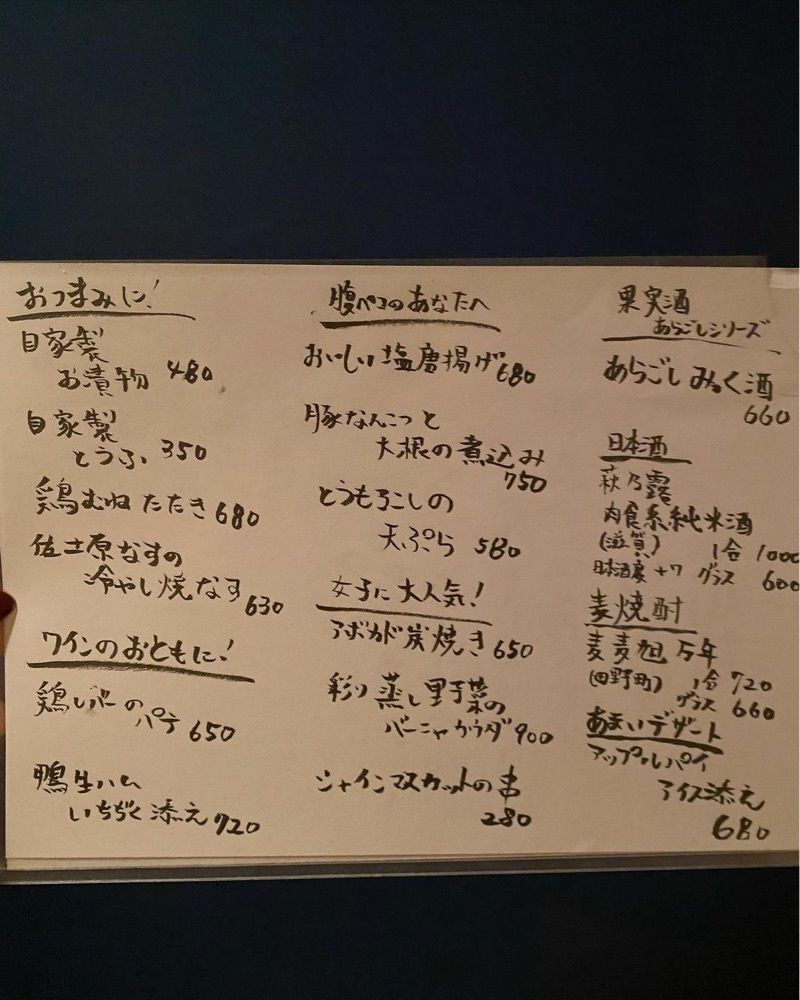 おつまみに!
自家製
お漬物 480
自家製
とうふ 350
鶏むねたたき 680
佐土原なすの
冷やし焼なす 630
ワインのおともに!
鶏レバーの
パテ 650
鴨生ハム
いちぢく添え 720
腹ペコのあなたへ
おいしい塩磨揚げ 680
豚なんこつと
大根の煮込み
750
とうもろこしの
天ぷら 580
女子に大人気!
アボカド炭焼き 650
彩り蒸し野菜の
バーニャカウダ 900
シャインマスカットの串
280
果実酒
あらごしシリーズ
あらごしみっく酒
660
日本酒
萩乃露
肉食系純米酒
(滋賀) 1合 1000
日本酒度+7 グラス 600
麦焼酎
麦麦旭万年
(田野町) 1合 720
グラス 660
あまいデザート
アップルパイ
アイス添え
680